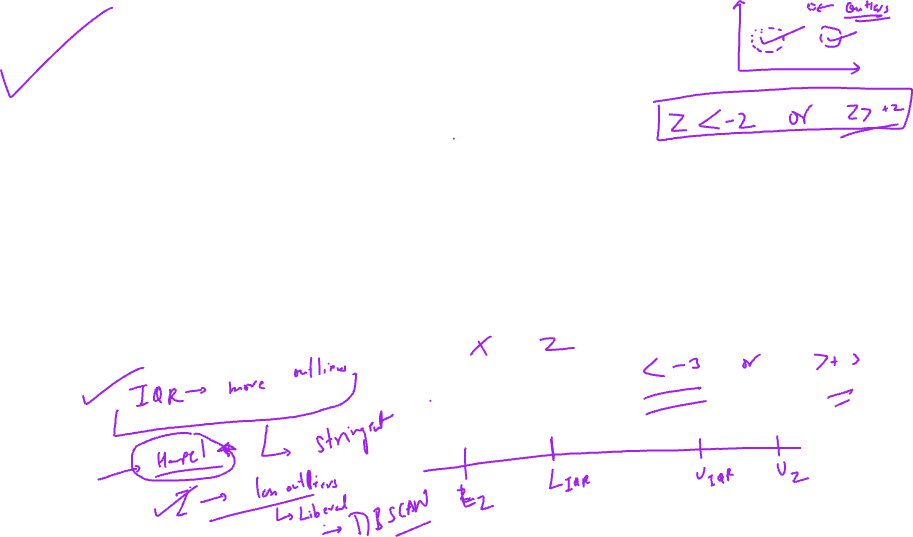 outliers
Z < -2 or Z > +2
X Z
< -3 or > + 3
IQR → more outliers
↳ stringent
Hampel
Z → less outliers
↳ Liberal
→ DBSCAN
L Z L IQR U IQR U Z